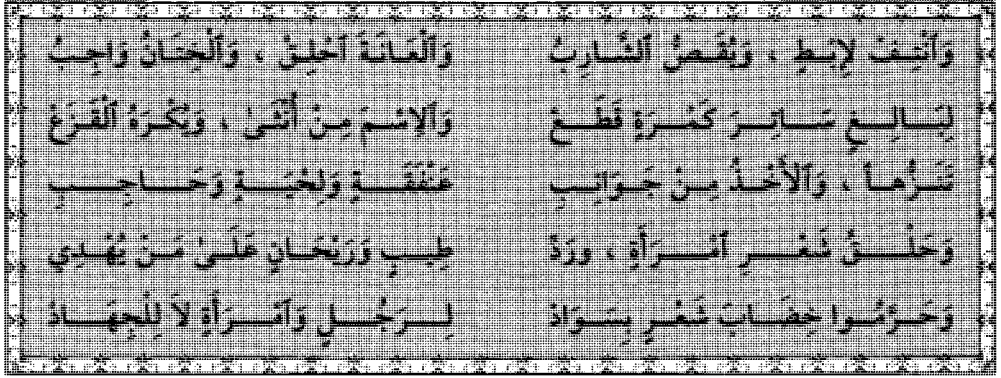 وَٱنْتِفْ لِإِبْطٍ ، وَيُقَصُّ ٱلشَّارِبُ وَٱلْعَانَةَ ٱحْلِقْ ، وَٱلْخِتَانُ وَاجِبُ
لِبَالِغٍ سَاتِرَ كَمْرَةٍ قَطَعْ وَٱلِاسْمَ مِنْ أُنْثَىٰ ، وَيُكْرَهُ ٱلْقَزَعْ
تَنَزُّهاً ، وَٱلْأَخْذُ مِنْ جَوَانِبِ عَنْفَقَةٍ وَلِحْيَةٍ وَحَاجِبِ
وَحَلْقُ شَعْرِ ٱمْرَأَةٍ ، ورَدُّ طِيبٍ وَرَيْحَانٍ عَلَىٰ مَنْ يُهْدِي
وَحَرَّمُوا خِضَابَ شَعْرٍ بِسَوَادْ لِرَجُلٍ وَٱمْرَأَةٍ لاَ لِلْجِهَادْ